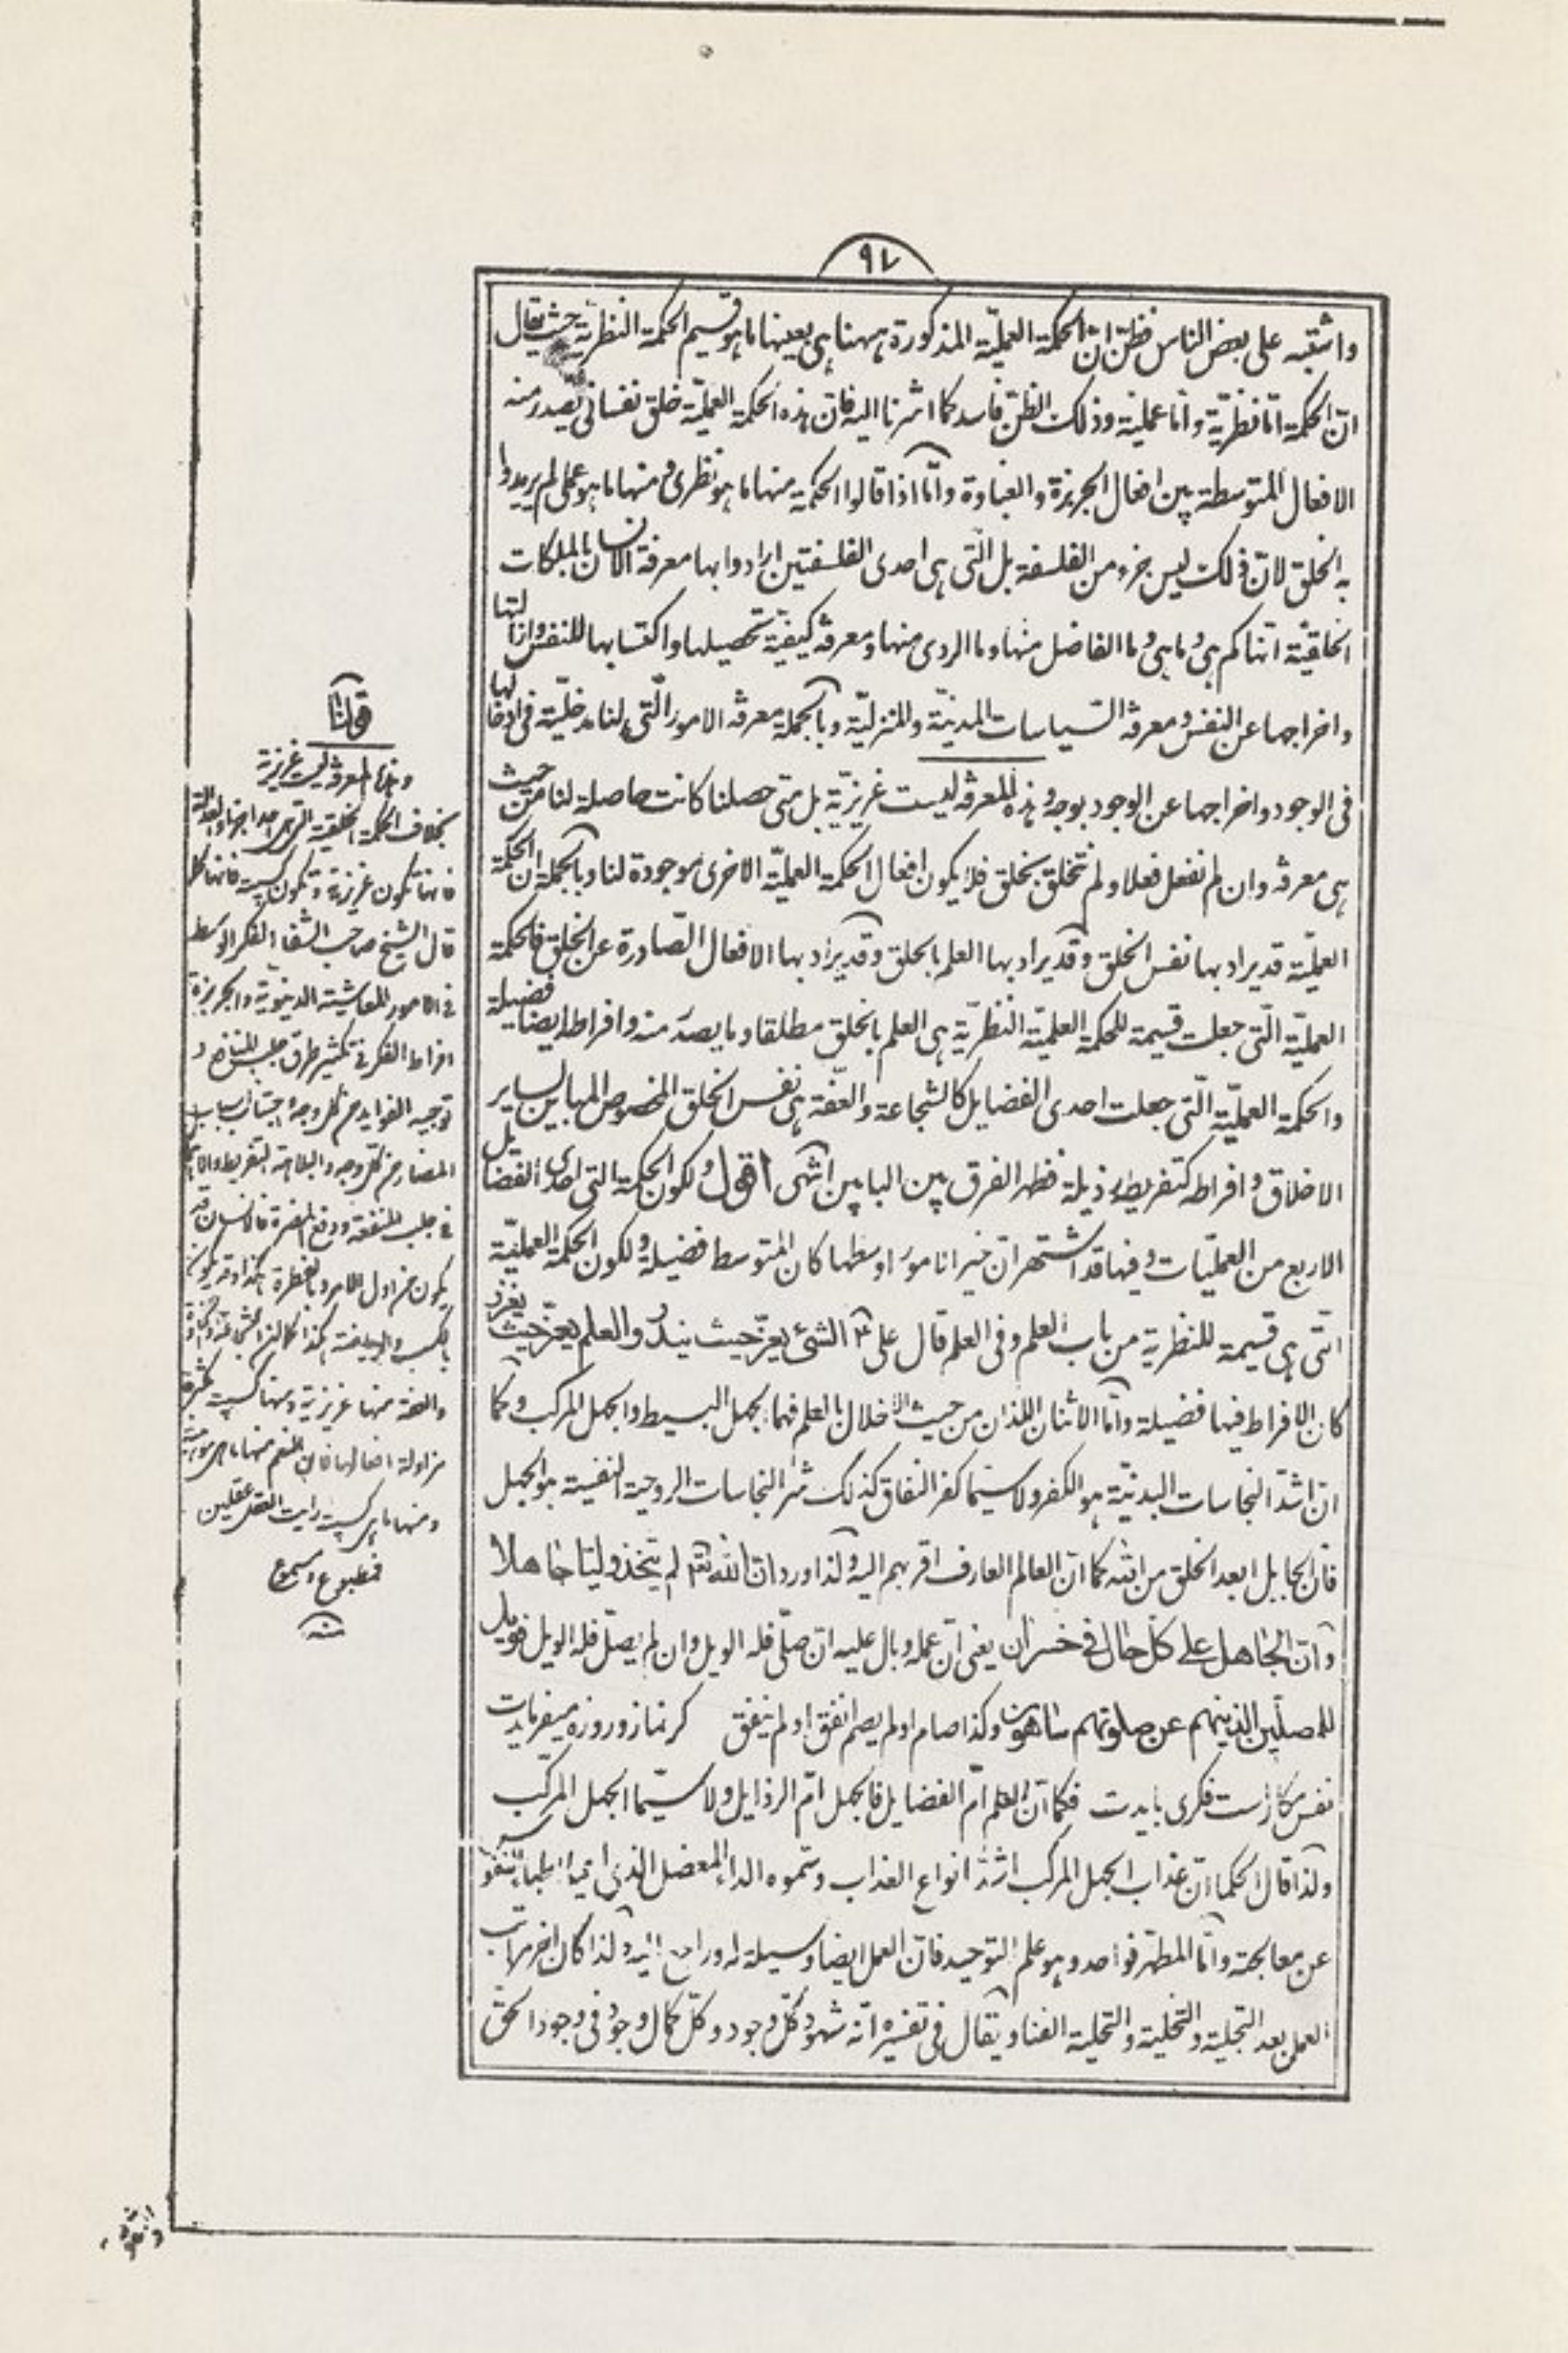 ٩٧
واشتبه على بعض الناس فظن ان الحكمة العمليّة المذكورة ههنا هى بعينها ما هو قسيم الحكمة النظريّة حيث يقال
انّ الحكمة امّا نظريّة وامّا عمليّة وذلك الظنّ فاسد كما اشرنا اليه فان هذه الحكمة العمليّة خلق نفسانى يصدر منه
الافعال المتوسطة بين افعال الجربزة والغباوة وامّا اذا قالوا الحكمة منها ما هو نظرى ومنها ما هو عملى لم يريدوا
به الخلق لانّ ذلك ليس جزء من الفلسفة بل الّتى هى احدى الفلسفتين ارادوا بها معرفة الانسان بالملكات
الخلقيّة انّها كم هى وما هى وما الفاضل منها وما الردى منها ومعرفة كيفيّة تحصيلها واكتسابها للنفس وازالتها
واخراجها عن النفس ومعرفة السّياسات المدنيّة والمنزليّة وبالجملة معرفة الامور الّتى لنا مدخليّة فى ادخالها
فى الوجود واخراجها عن الوجود بوجه وهذه المعرفة ليست غريزيّة بل متى حصلنا كانت حاصلة لنا من حيث
هى معرفة وان لم نفعل فعلا ولم نتخلق بخلق فلا يكون افعال الحكمة العمليّة الاخرى موجودة لنا وبالجملة ان الحكمة
العمليّة قد يراد بها نفس الخلق وقد يراد بها العلم بالخلق وقد يراد بها الافعال الصّادرة عن الخلق فالحكمة
العمليّة الّتى جعلت قسيمة للحكمة العلميّة النظريّة هى العلم بالخلق مطلقا وما يصدر منه وافراطه ايضا فضيلة
والحكمة العمليّة الّتى جعلت احدى الفضايل كالشجاعة والعفّة هى نفس الخلق المخصوص المباين لساير
الاخلاق وافراطه كتفريطه رذيلة فظهر الفرق بين البابين انتهى اقول ولكون الحكمة التى احدى الفضايل
الاربع من العمليّات وفيها قد اشتهر ان خير الامور اوسطها كان المتوسط فضيلة ولكون الحكمة العمليّة
التى هى قسيمة للنظرية من باب العلم وفى العلم قال على ع الشئ يعزّ حيث يندر والعلم يعزّ حيث يغزر
كان الافراط فيها فضيلة وامّا الاثنان اللذان من حيث الاخلال بالعلم فهما الجهل البسيط والجهل المركب وكما
ان اشدّ النجاسات البدنيّة هو الكفر ولا سيّما كفر النفاق كذلك شر النجاسات الروحية النفسية هو الجهل
فان الجاهل ابعد الخلق من الله كما ان العالم العارف اقربهم اليه ولذا ورد ان الله لم يتخذ وليّا جاهلا
وان الجاهل على كلّ حال فى خسران يعنى ان عمله وبال عليه ان صلّى فله الويل وان لم يصلّ فله الويل فويل
للمصلّين الذينهم عن صلوتهم ساهون وكذا صام او لم يصم انفق او لم ينفق كر نماز وروزه ميفرمايدت
نفس مكارست فكرى بايدت فكما ان العلم امّ الفضايل فالجهل امّ الرذايل ولا سيّما الجهل المركب
ولذا قال الحكما ان عذاب الجهل المركب اشدّ انواع العذاب وسمّوه الداء المعضل الذى اعيا اطباء النفوس
عن معالجته وامّا المطهّر فواحد وهو علم التوحيد فان العمل ايضا وسيلة له وراجع اليه ولذا كان اخر مراتب
العمل بعد التجلية والتخلية والتحلية الفنا ويقال فى تفسيره انه شهود كلّ وجود وكلّ كمال وجود فى وجود الحق
قولنا
وهذه المعرفة ليست غريزية
بخلاف الحكمة الخلقية التى هى احد اجزاء العدالة
فانها تكون غريزية وتكون كسبية فانها كما
قال الشيخ صاحب الشفا الفكر الوسط
فى الامور المعاشية الدنيوية والجربزة
افراط الفكر فى تكثير طرق جلب المنافع و
توجيه الفوايد من كل وجه واجتناب اسباب
المضار من كل وجه والبلاهة التفريط
فى جلب المنفعة ودفع المضرة فالانسان قد
يكون من اول الامر بالفطرة هكذا وقد يكون
بالكسب والرياضة هكذا كما ان الشجاعة
والعفة منها غريزية ومنها كسبية
مزاولة افعالها فان العلم منها ما هى موهبة
ومنها ما هى كسبية رايت العقل عقلين
فمطبوع ومسموع
منه